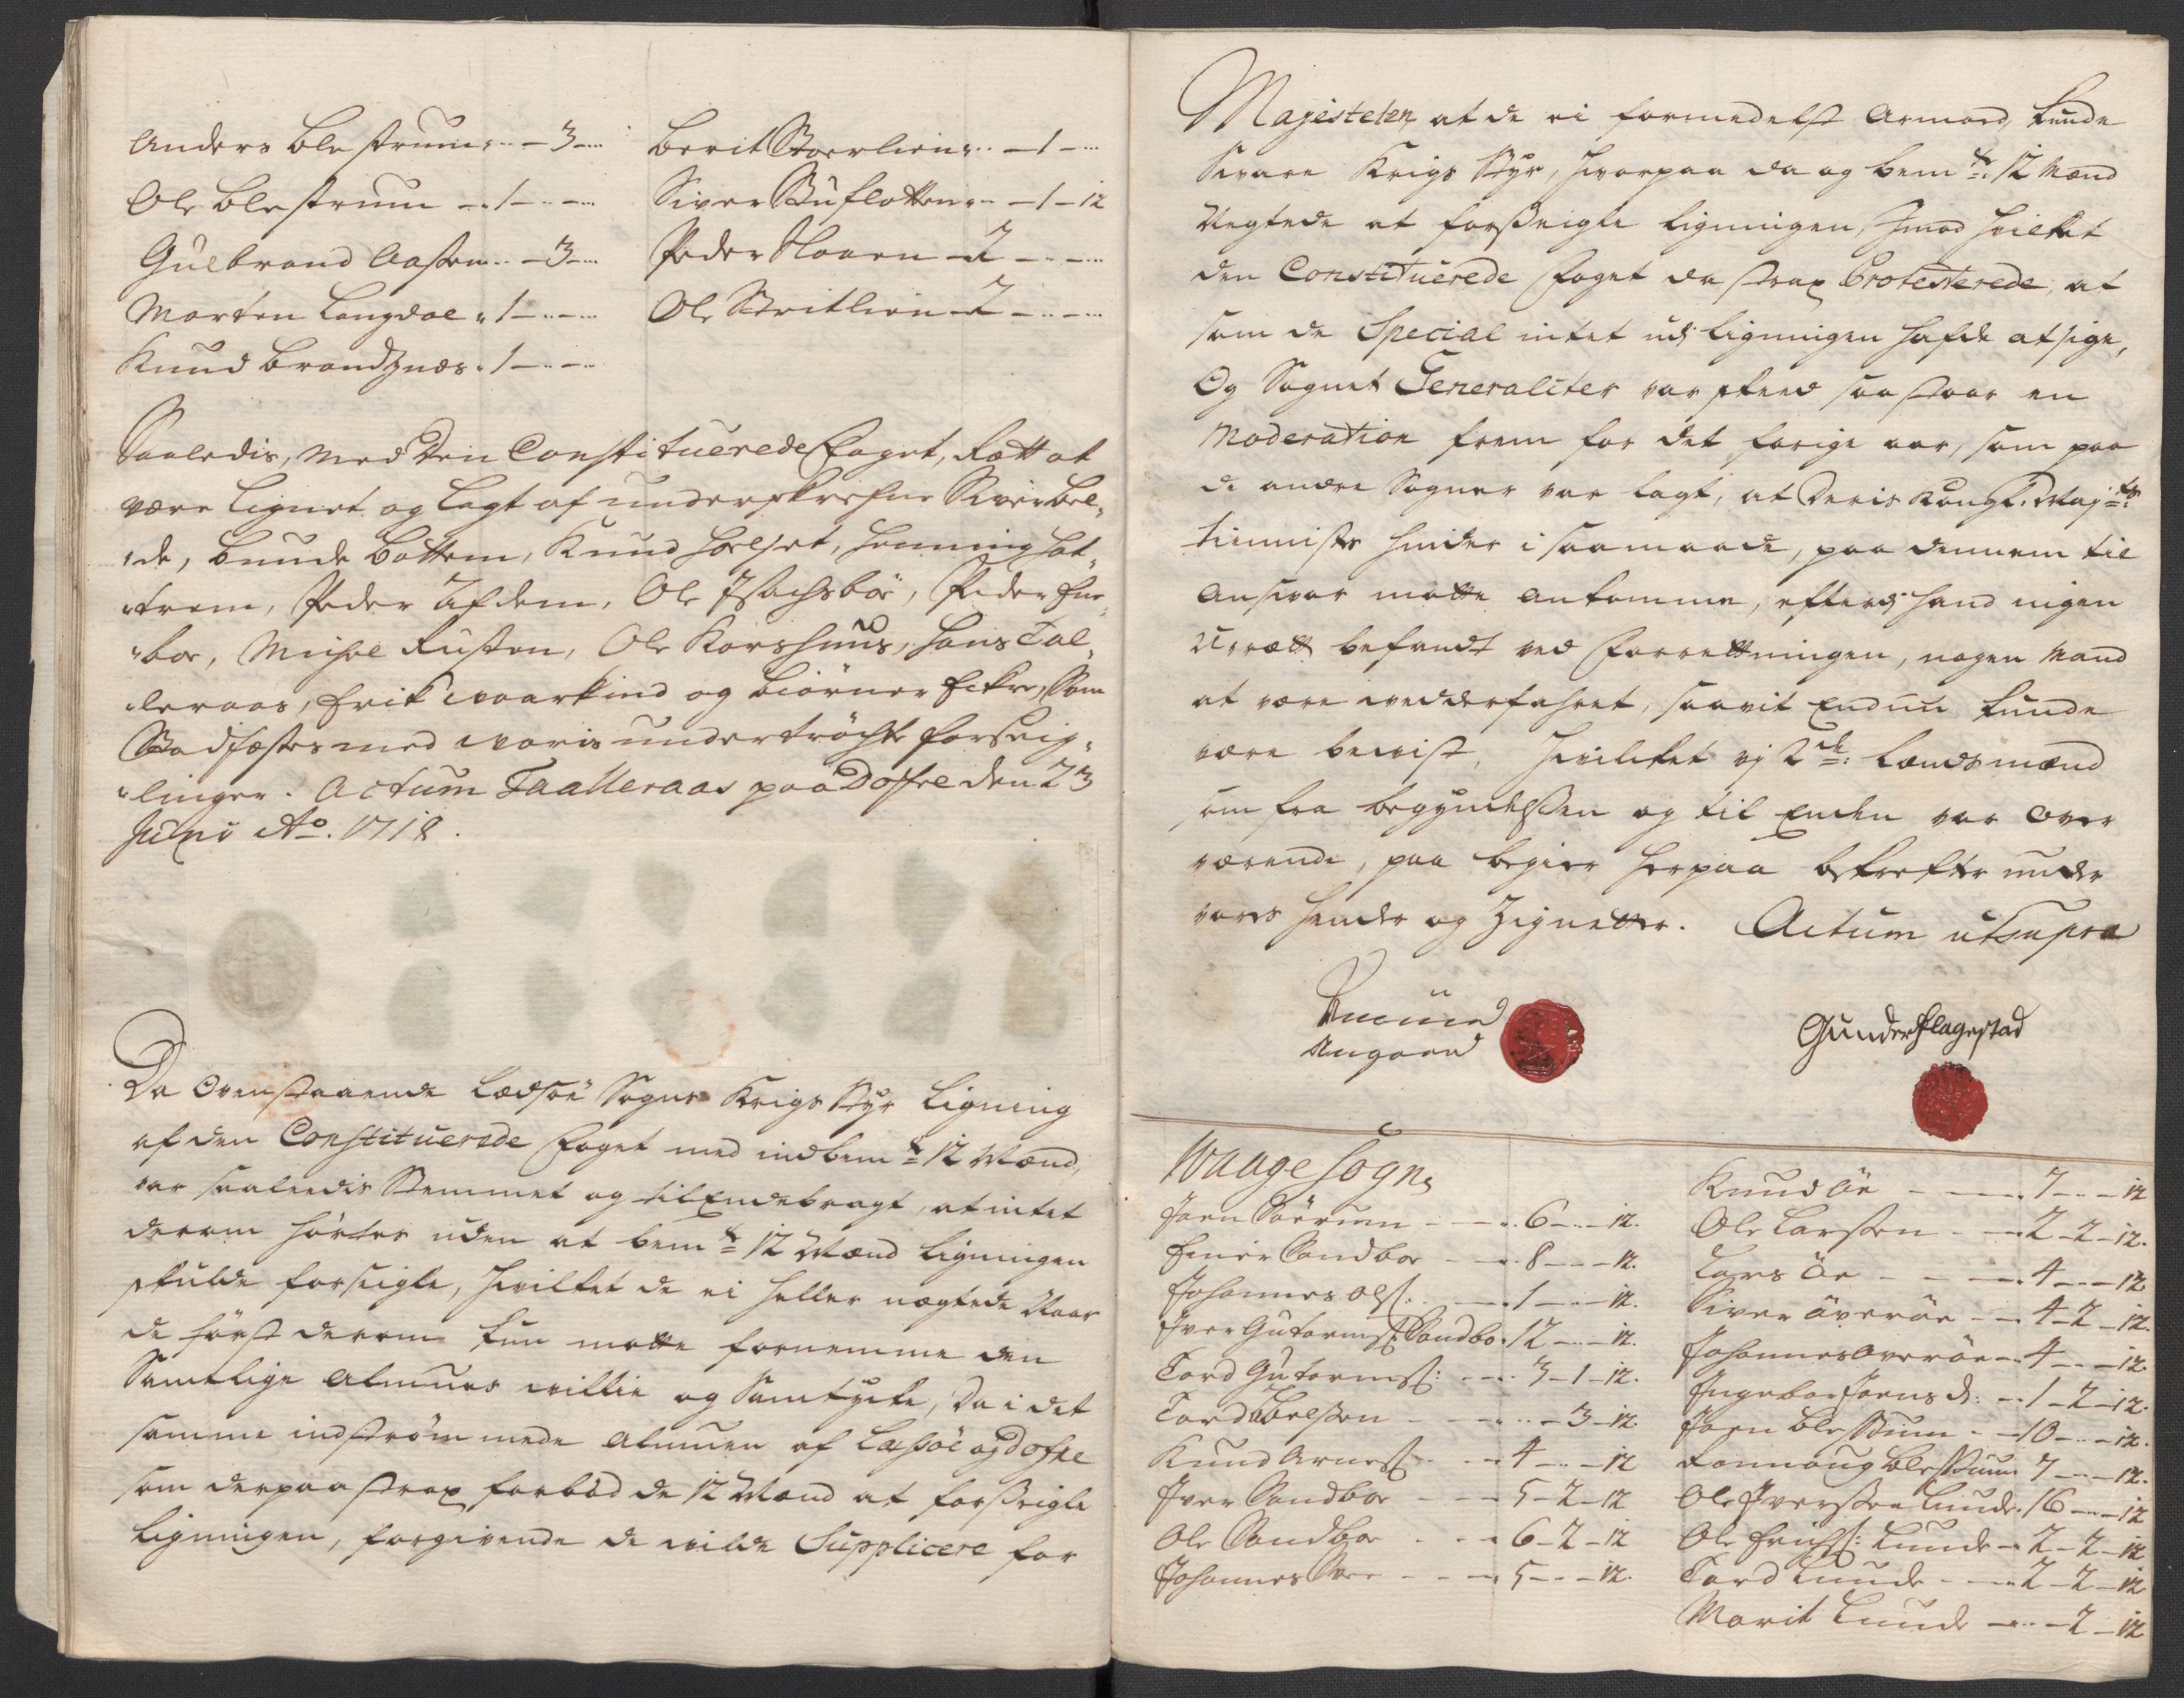 Anders Blestrum - 3 -
Ole Blestrum - 1 -
Gulbrand Aasen - 3 -
Morten Langdal - 1 -
Knud Brandznæs - 1 -
Berit Storlien - 1 -
Siver Buflotten - 1 - 12
Peder Moen - 2 -
Ole Stritlien - 2 -
Saaledis, med den Constituerede Foget, Rætt at
være lignet og lagt af underskrefne Siver Bel„
„de, Bunde Bottem, Knud Holset, Henning Hat„
„trem, Peder Ulfdem, Ole Isachsbøe, Peder Ene„
„boe, Michel Rusten, Ole Korshuus, Hans Tal„
„leraas, Erik Waarkind og Biørner Eckre, Som
Stadfæstes med woris undertrøchte forseig„
„linger. Actum Taalleraas paa Dofre den 23
Juni Ao. 1718.
Da Ovenstaaende Ledsøe Sogns Krigs Styr Ligning
af den Constituerede Foget med indbemte 12 Mænd,
var saaleedis Stemmet og til Endebragt, at intet
derom hørtes uden at bemte 12 Mænd Ligningen
skulde forseigle, hvilket de ei heller nægtede Naar
de først derom kun motte fornemme den
Samtlige Almues willie og Samtycke, Da i det
samme indstrømmede Almuen af Lessøe og Dofre
som derpaa strax forbød de 12 Mænd at forseigle
Ligningen, forgivende de wilde Supplicere for
Majesteten, at de ei formedelst Armod, kunde
Svare Krigs Styr, hvorpaa da og bemte. 12 Mænd
Negtede at forseigle Ligningen, Imod hvilket
den Constituerede Foget da strax Protesterede, at
som de Special intet udj Ligningen hafde at sige,
Og Sognet Generaliter var skeed saa stoor en
Moderation frem for det forige aar, som paa
de andre Sogner var lagt, at Deris Kongl. Mayts.
tienniste hinder i saamaade, paa dennem til
Ansvar motte ankomme, efterdj hand ingen
U-rætt befandt ved Forrettningen, nogen Mand
at være wedderfahret, saavit Endnu kunde
være beviist, Hvilcket vj 2de: Lænsmænd
som fra begyndelsen og til Enden var Over
værende, paa begier herpaa bekrefter under
vores hender og Zignetter. Actum ut supra
Amund
Angaard
Gunder Flagestad
Waage Sogn,
Joen Sørum - 6 - 12.
Einer Sandboe - 8 - 12.
Johannes Ols: - 1 - 12.
Iver Gutormss: Sandbo 12 - 12.
Tord Gutormss: - 3 - 1 - 12.
- 3 - 12.
Knud Arness: - 4 - 12
Iver Sandboe - 5 - 2 - 12
Ole Sandboe - 6 - 2 - 12
Johannes - 5 - 12.
Knud Öe - 7 - 12
Ole Larsen - 2 - 2 - 12.
Lars Öe - 4 - 12
Siver Överöe - 4 - 2 - 12.
Johannes Överöe - 4 - 12.
Ingebor Joens d: - 1 - 2 - 12.
Joen Blessum - 10 - 12.
Ronnoug Blessum 7 - 12.
Ole Iversen Lunde 16 - 12
Ole Erichs: Lunde - 2 - 2 - 12
Tord Lunde - 2 - 2 - 12
Marit Lunde - 2 - 12